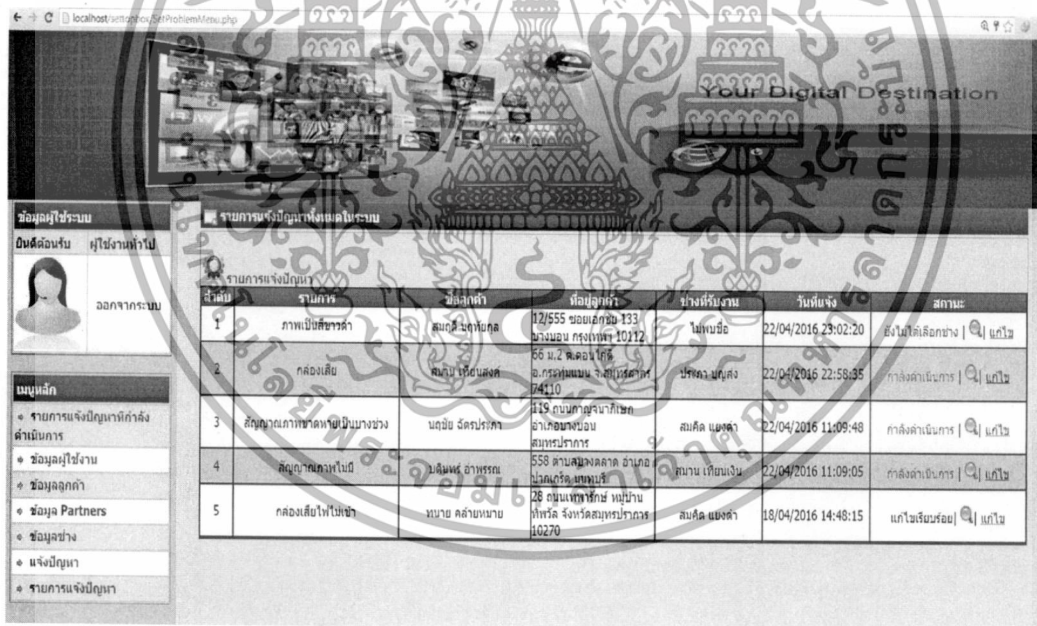 localhost/settopbox/SetProblemMenu.php
Your Digital Destination
ข้อมูลผู้ใช้ระบบ
ยินดีต้อนรับ ผู้ใช้งานทั่วไป
ออกจากระบบ
เมนูหลัก
รายการแจ้งปัญหาที่กำลัง
ดำเนินการ
ข้อมูลผู้ใช้งาน
ข้อมูลลูกค้า
ข้อมูล Partners
ข้อมูลช่าง
แจ้งปัญหา
รายการแจ้งปัญหา
รายการแจ้งปัญหาทั้งหมดในระบบ
รายการแจ้งปัญหา
ลำดับ รายการ ชื่อลูกค้า ที่อยู่ลูกค้า ช่างที่รับงาน วันที่แจ้ง สถานะ
1 ภาพเป็นสีขาวดำ 12/555 ซอยเอกชัย 133
บางบอน กรุงเทพฯ 10112 ไม่พบชื่อ 22/04/2016 23:02:20 ยังไม่ได้เลือกช่าง | | แก้ไข
2 กล่องเสีย 66 ม.2 ต.ดอนไก่ดี
อ.กระทุ่มแบน จ.สมุทรสาคร
74110 22/04/2016 22:58:35 กำลังดำเนินการ | | แก้ไข
3 สัญญาณภาพขาดหายเป็นบางช่วง นฤชัย ฉัตรประภา 119 ถนนกาญจนาภิเษก
อำเภอบางบอน
สมุทรปราการ สมคิด แยงดำ 22/04/2016 11:09:48 กำลังดำเนินการ | | แก้ไข
4 สัญญาณภาพไม่มี บดินทร์ อาพรรณ 558 ตำบลบางตลาด อำเภอ
ปากเกร็ด นนทบุรี สมาน เทียนเงิน 22/04/2016 11:09:05 กำลังดำเนินการ | | แก้ไข
5 กล่องเสียไฟไม่เข้า ทนาย คล้ายหมาย 28 ถนนเทพารักษ์ หมู่บ้าน
ทิพวัล จังหวัดสมุทรปราการ
10270 สมคิด แยงดำ 18/04/2016 14:48:15 แก้ไขเรียบร้อย | | แก้ไข